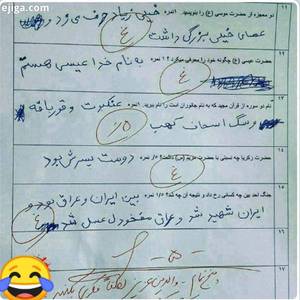 ejiga.com
۱۱ دو معجزه از حضرت موسی (ع) را بنویسید. ۱نمره خیلی زیاد حرف می زد و
عصای خیلی بزرگی داشت
حضرت عیسی (ع) چگونه خود را معرفی میکرد؟ ۱ نمره به نام خدا عیسی هستم
نام دو سوره از قرآن مجید که به نام جانوران است را نام ببرید. ۱نمره عنکبوت و قورباغه
و سگ اصحاب کهف
۱۴ حضرت زکریا چه نسبتی با حضرت مریم (س) داشت؟ ۰/۵ نمره دوست پسرش بود
جنگ احد بین چه کسانی رخ داد و نتیجه آن چه شد؟ ۱/۵ نمره بین ایران و عراق بود و
ایران شهید شد و عراق مفخود ل عسل شد
۱۶
۱۷
والدین عزیز لطفا